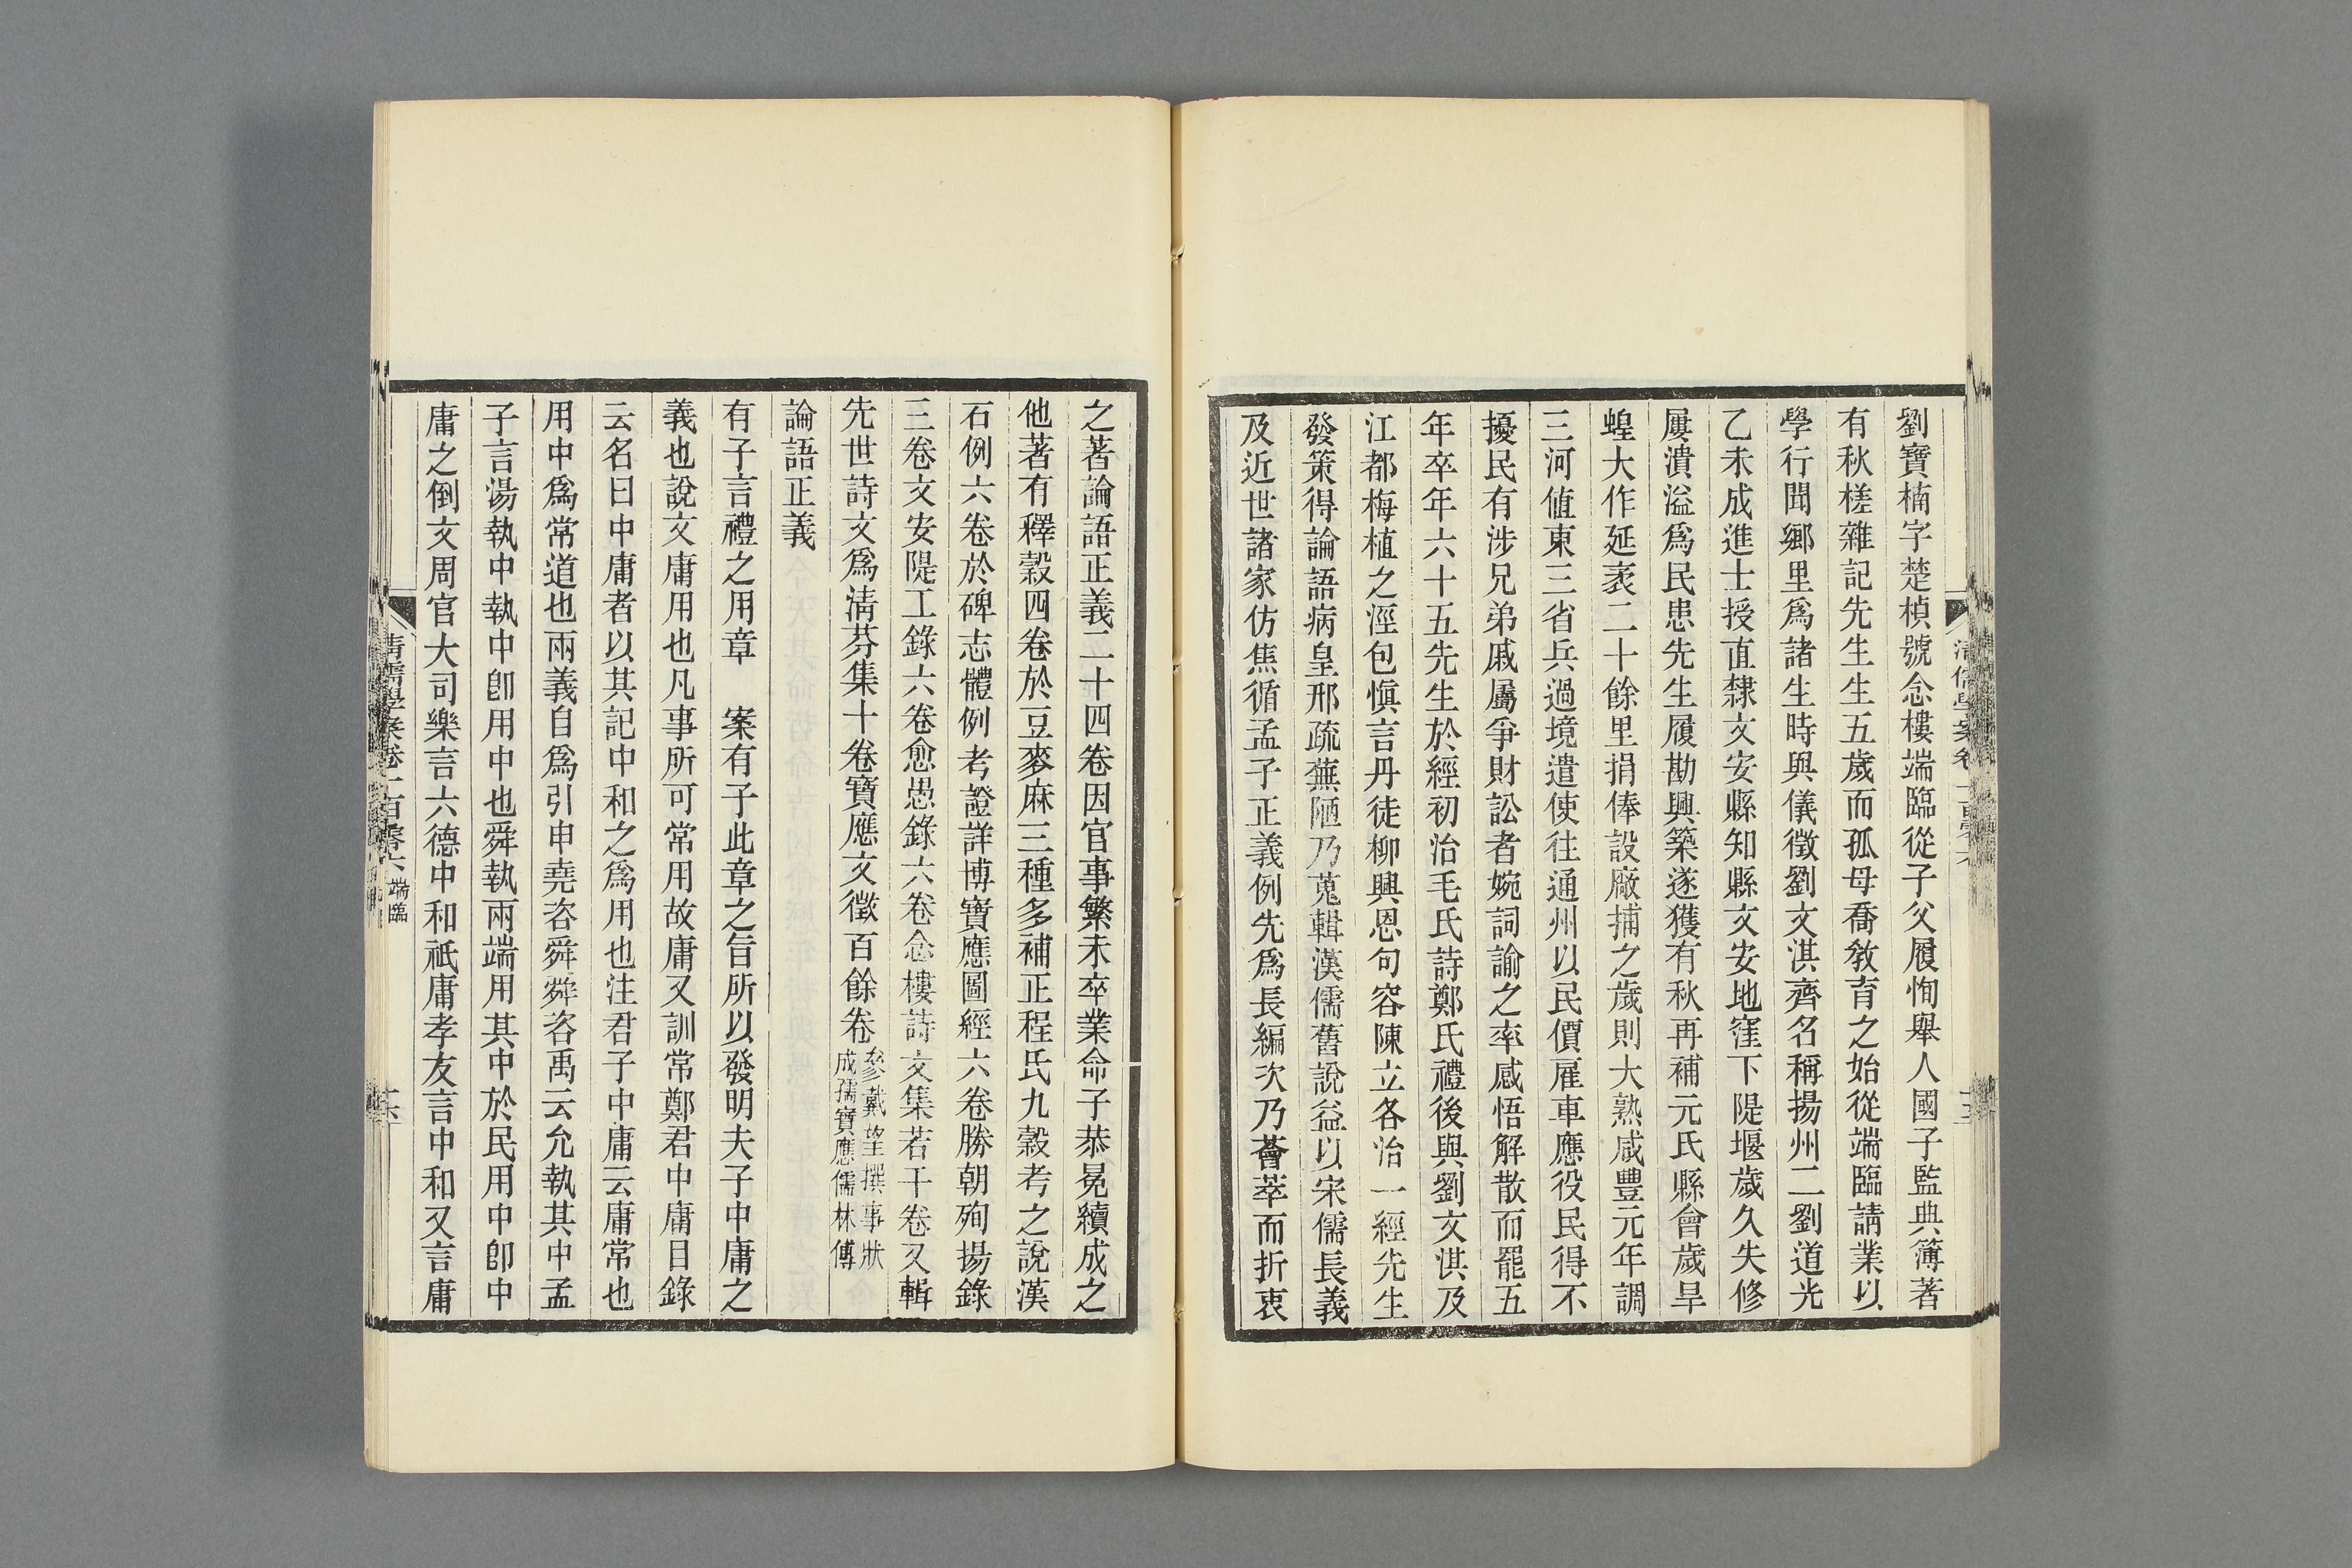 劉寶楠字楚楨號念樓端臨從子父履恂舉人國子監典簿著
有秋槎雜記先生生五歲而孤母喬敎育之始從端臨請業以
學行聞鄕里爲諸生時與儀徵劉文淇齊名稱揚州二劉道光
乙未成進士授直隸文安縣知縣文安地窪下隄堰歲久失修
屢潰溢爲民患先生履勘興築遂獲有秋再補元氏縣會歲旱
蝗大作延袤二十餘里捐俸設廠捕之歲則大熟咸豐元年調
三河値東三省兵過境遣使往通州以民價雇車應役民得不
擾民有涉兄弟戚屬爭財訟者婉詞諭之率感悟解散而罷五
年卒年六十五先生於經初治毛氏詩鄭氏禮後與劉文淇及
江都梅植之涇包愼言丹徒柳興恩句容陳立各治一經先生
發策得論語病皇邢疏蕪陋乃蒐輯漢儒舊說益以宋儒長義
及近世諸家仿焦循孟子正義例先爲長編次乃薈萃而折衷
之著論語正義二十四卷因官事繁未卒業命子恭冕續成之
他著有釋穀四卷於豆麥麻三種多補正程氏九穀考之說漢
石例六卷於碑志體例考證詳博寶應圖經六卷勝朝殉揚錄
三卷文安隄工錄六卷愈愚錄六卷念樓詩文集若干卷又輯
先世詩文爲淸芬集十卷寶應文徵百餘卷參戴望撰事狀
成孺寶應儒林傳
論語正義
有子言禮之用章　案有子此章之旨所以發明夫子中庸之
義也說文庸用也凡事所可常用故庸又訓常鄭君中庸目錄
云名曰中庸者以其記中和之爲用也注君子中庸云庸常也
用中爲常道也兩義自爲引申堯咨舜舜咨禹云允執其中孟
子言湯執中執中卽用中也舜執兩端用其中於民用中卽中
庸之倒文周官大司樂言六德中和祇庸孝友言中和又言庸
淸儒學案卷一百零六 端臨